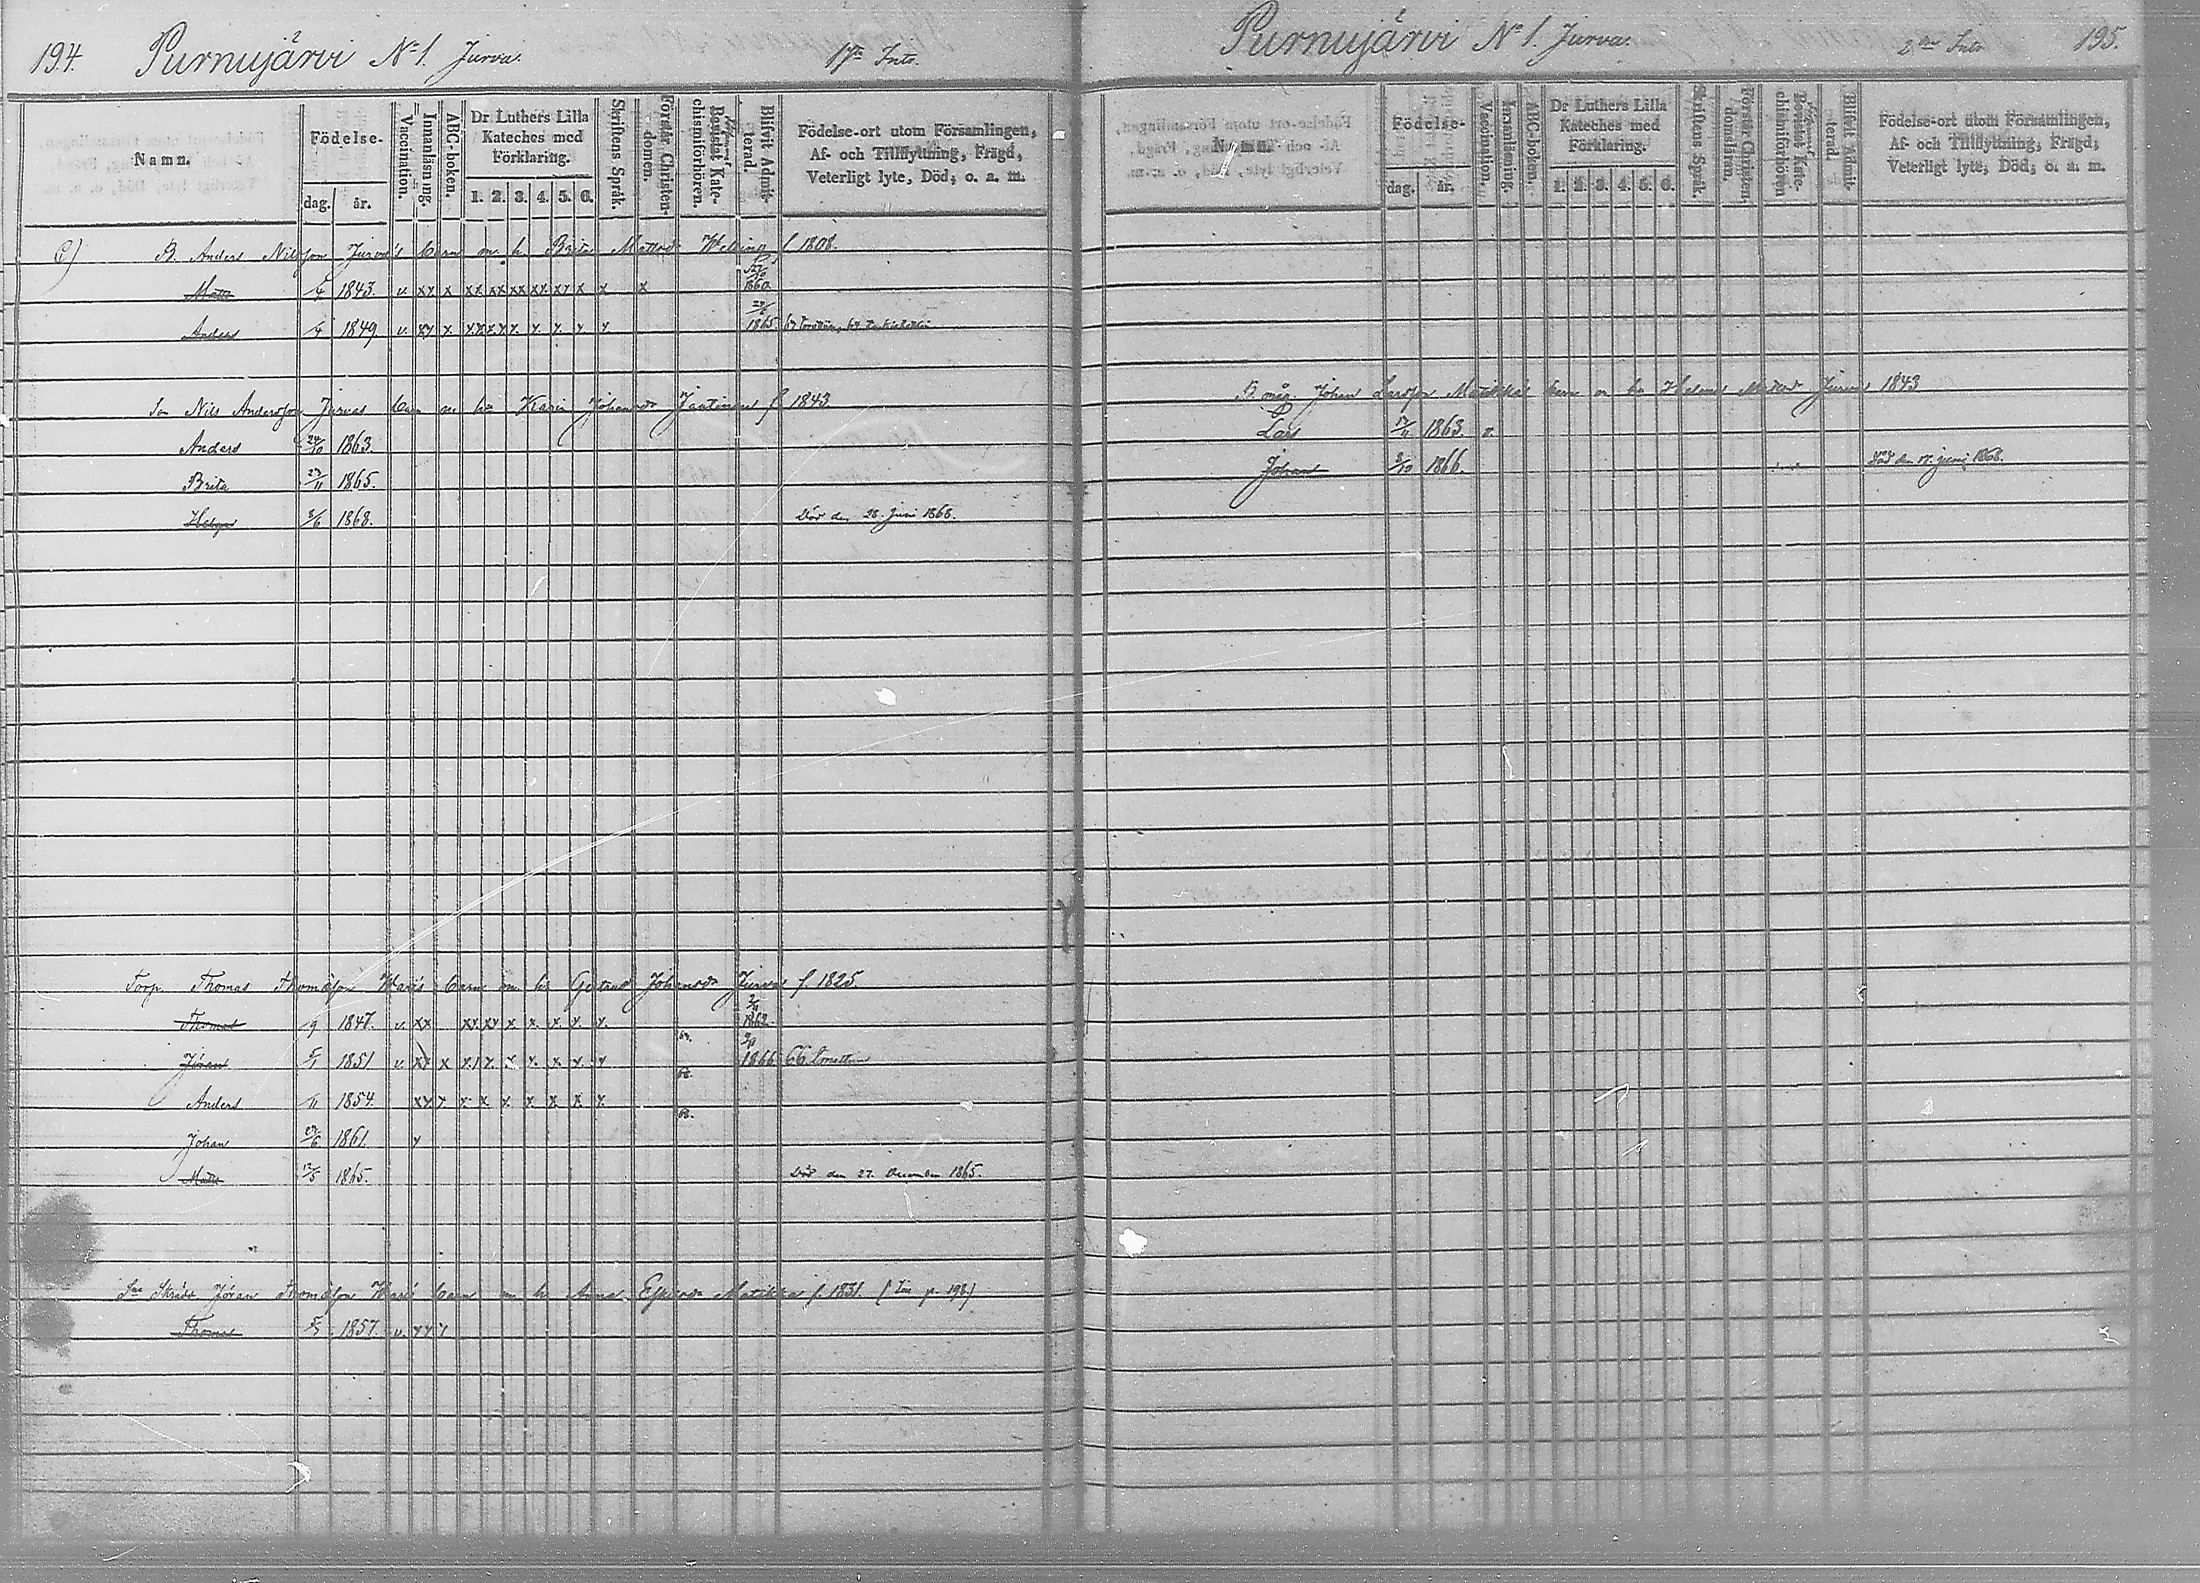 194. Purnujärvi No 1. Jurva. 1sta Intr.
Namn.
Födelse-
dag.
år.
Vaccination.
Innanläsning.
ABC-boken.
Dr Luthers Lilla
Kateches med
Förklaring.
1. 2. 3. 4. 5. 6.
Skriftens Språk.
Förstår Christen-
domen.
Bevistat Kate-
chismiförhören.
Blifvit Admit-
terad.
Födelse-ort utom Församlingen,
Af- och Tillflyttning, Frägd,
Veterligt lyte, Död, o. a. m.
B. Anders Nilsson Jurva's barn m. h. Brita Mattsd. f 1808.
Matts 4 1843. v xx x xx xx xx xx xx x x x 1860.
Anders 4 1849 v. xx x 1865
Son Nils Andersson Jurvas barn m. hu Karin Johansd. Jantinen f. 1843.
Anders 24/10 1863.
Brita 23/11 1865.
Helga 3/6 1868. Död den 28. Juni 1868.
Torp. Thomas Thomasson Haris barn m. h. Gertrud Johansd. Jurva f. 1825.
Thomas 9 1847. v. xx xx xx x x. x. x. x. 1862.
Jöran 1851 v. xx x 1866
Anders 11 1854. xx x. x. x. x. x. x. x. x.
Johan 29/6 1861. x
Matts 17/5 1865. Död den 27. December 1865.
Jöran Thomasson Haris barn m. h. Anna Espersd. Matikka f. 1831. ( p. 198)
Thomas 1857. v. x x x
195. Purnujärvi No 1. Jurva. 2dra Intr.
Namn.
Födelse-
dag.
år.
Vaccination.
Innanläsning.
ABC-boken.
Dr Luthers Lilla
Kateches med
Förklaring.
1. 2. 3. 4. 5. 6.
Skriftens Språk.
Förstår Christen-
domsläran.
Bevistat Kate-
chismiförhören
Blifvit Admit-
terad.
Födelse-ort utom Församlingen,
Af- och Tillflyttning, Frägd,
Veterligt lyte, Död, o. a. m.
B. måg Johan Larsson Matikka barn m. hu Helena Mattsd. Jurva 1843
Lars 17/11 1863. v.
Johan 3/10 1866. Död den 17. juni 1868.